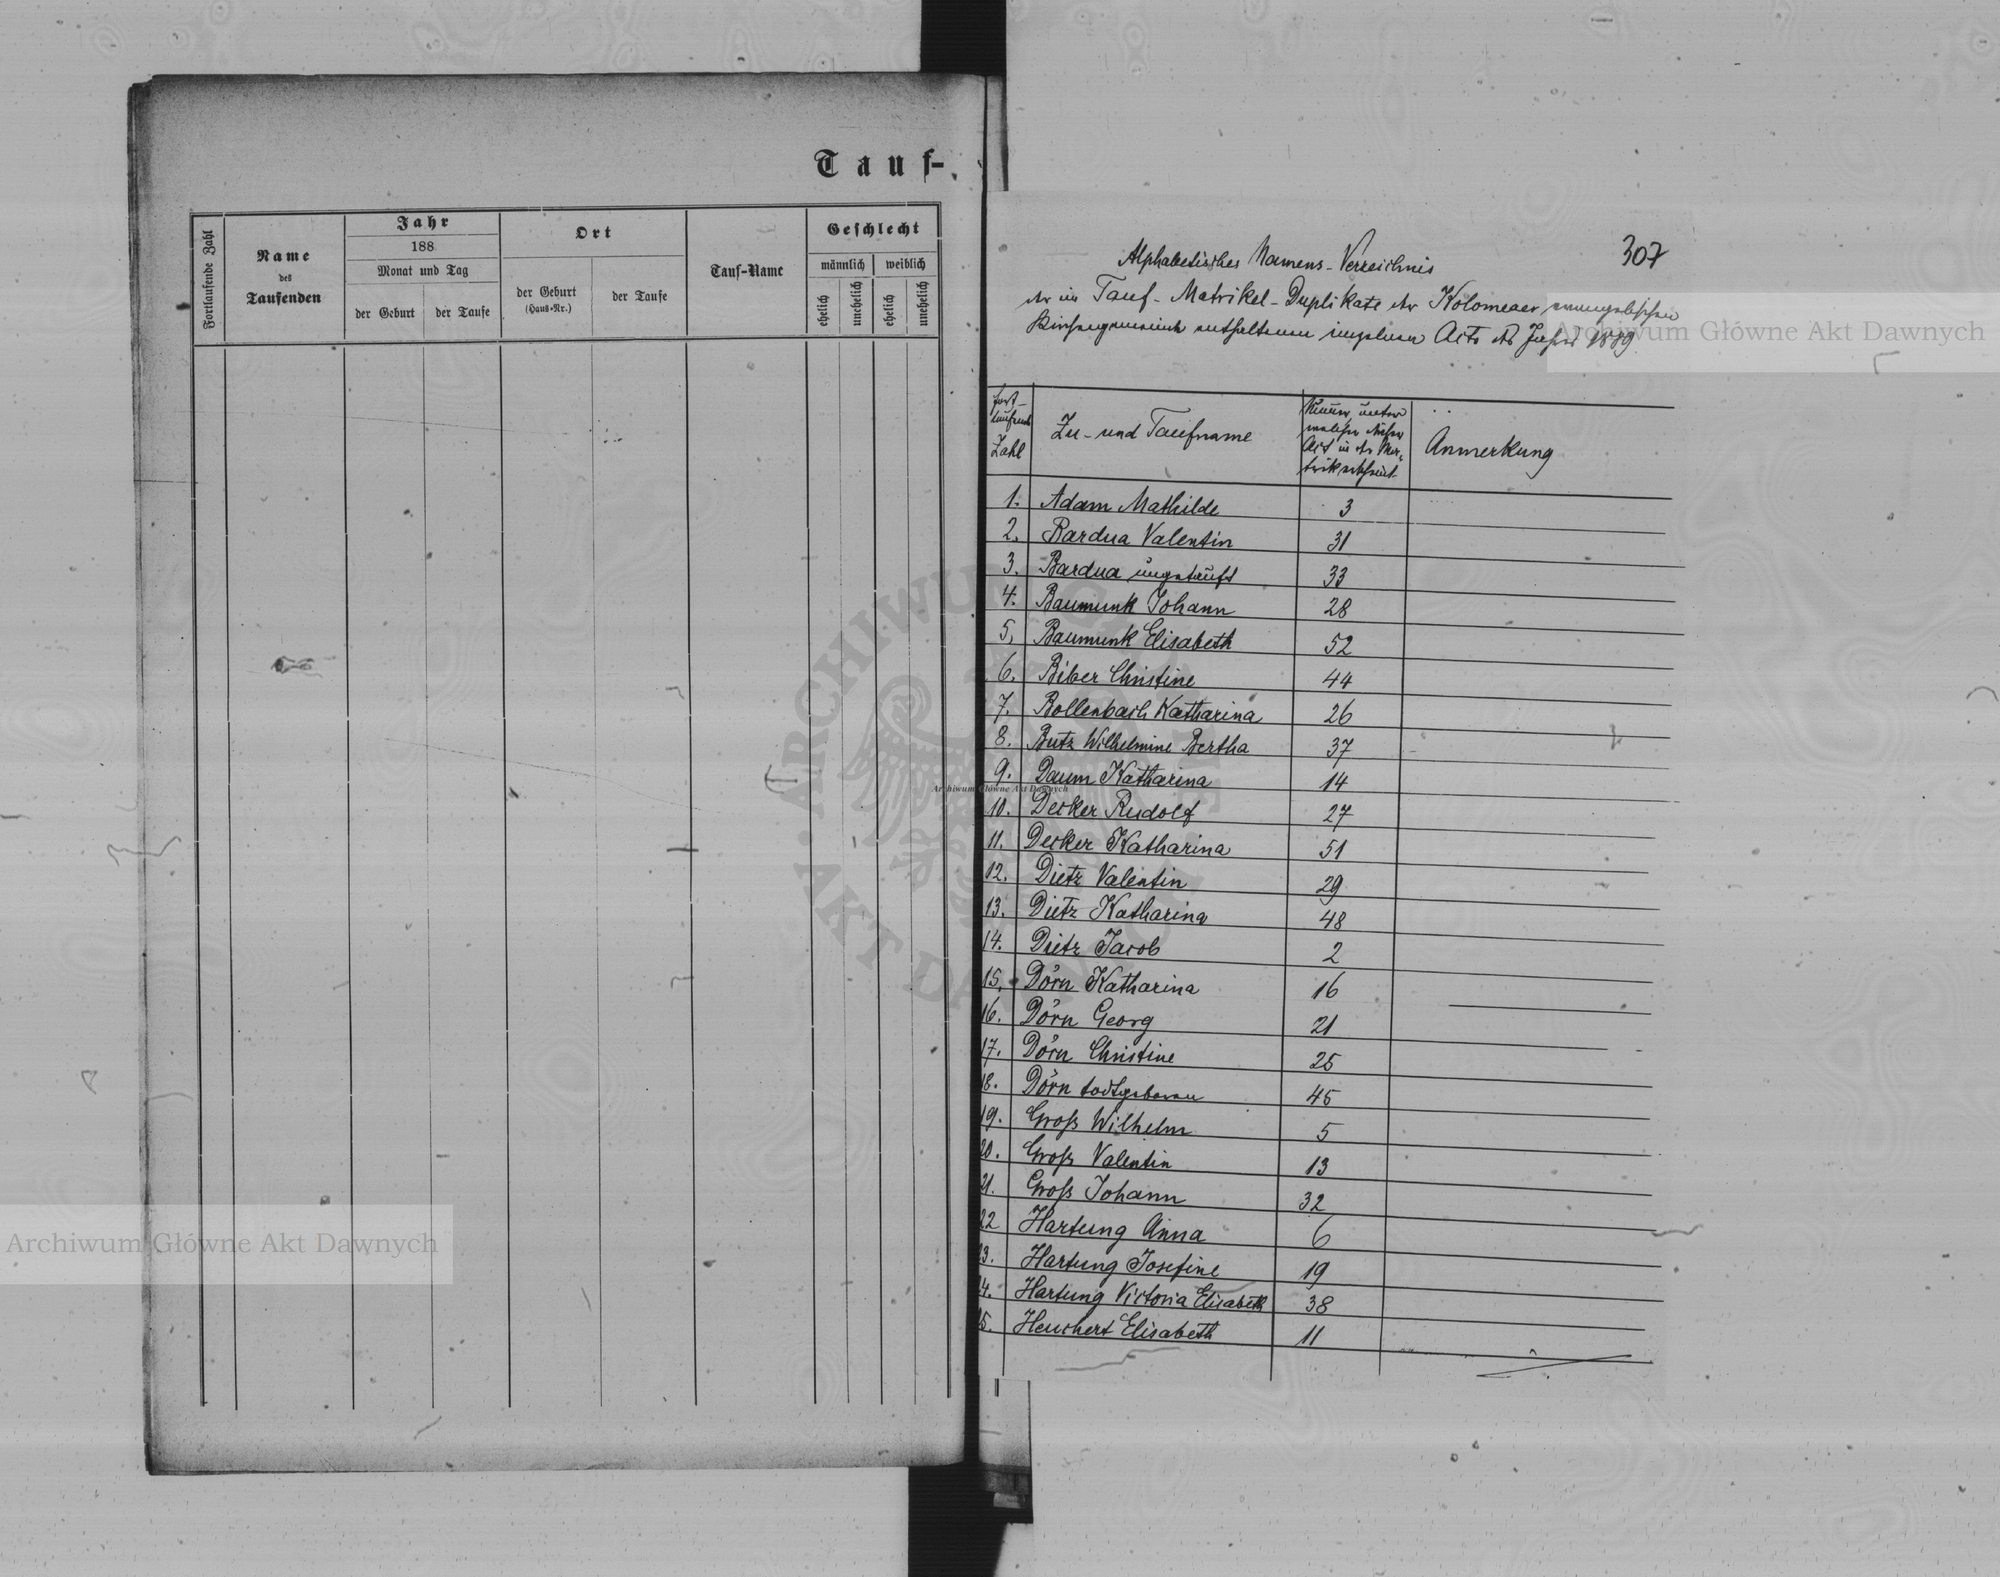 Tauf-
Fortlaufende Zahl
Name
des
Taufenden
Jahr
188
Monat und Tag
der Geburt
der Taufe
Ort
der Geburt
(Haus-Nr.)
der Taufe
Tauf-Name
Geschlecht
männlich
weiblich
ehelich
unehelich
ehelich
unehelich
307
Alphabetisches Namens-Verzeichnis
der im Tauf-Matrikel-Duplikate der Kolomeaer evangelischen
Kirchengemeinde enthaltenen einzelnen Acte des Jahres 1889
Fort-
laufende
Zahl
Zu- und Taufname
unter
welcher dieser
Act in der Ma-
trik erscheint
Anmerkung
1. Adam Mathilde 3
2. Bardua Valentin 31
3. Bardua ungetauft 33
4. Baumunk Johann 28
5. Baumunk Elisabeth 52
6. Biber Christine 44
7. Bollenbach Katharina 26
8. Butz Wilhelmine Bertha 37
9. Daum Katharina 14
10. Decker Rudolf 27
11. Decker Katharina 51
12. Dietz Valentin 29
13. Dietz Katharina 48
14. Dietz Jacob 2
15. Dörn Katharina 16
16. Dörn Georg 21
17. Dörn Christine 25
18. Dörn todtgeboren 45
19. Groß Wilhelm 5
20. Groß Valentin 13
21. Groß Johann 32
22 Hartung Anna 6
23. Hartung Josefine 19
24. Hartung Victoria Elisabeth 38
25. Heuchert Elisabeth 11
Archiwum Główne Akt Dawnych
Archiwum Główne Akt Dawnych
Archiwum Główne Akt Dawnych